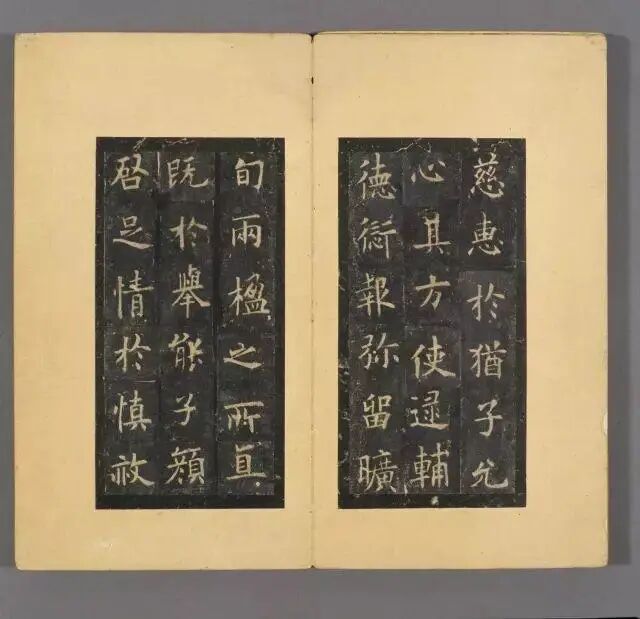 慈惠於猶子允
心其方使逯輔
德愆報弥留曠
旬兩楹之所
既於舉能子顏
启足情於慎